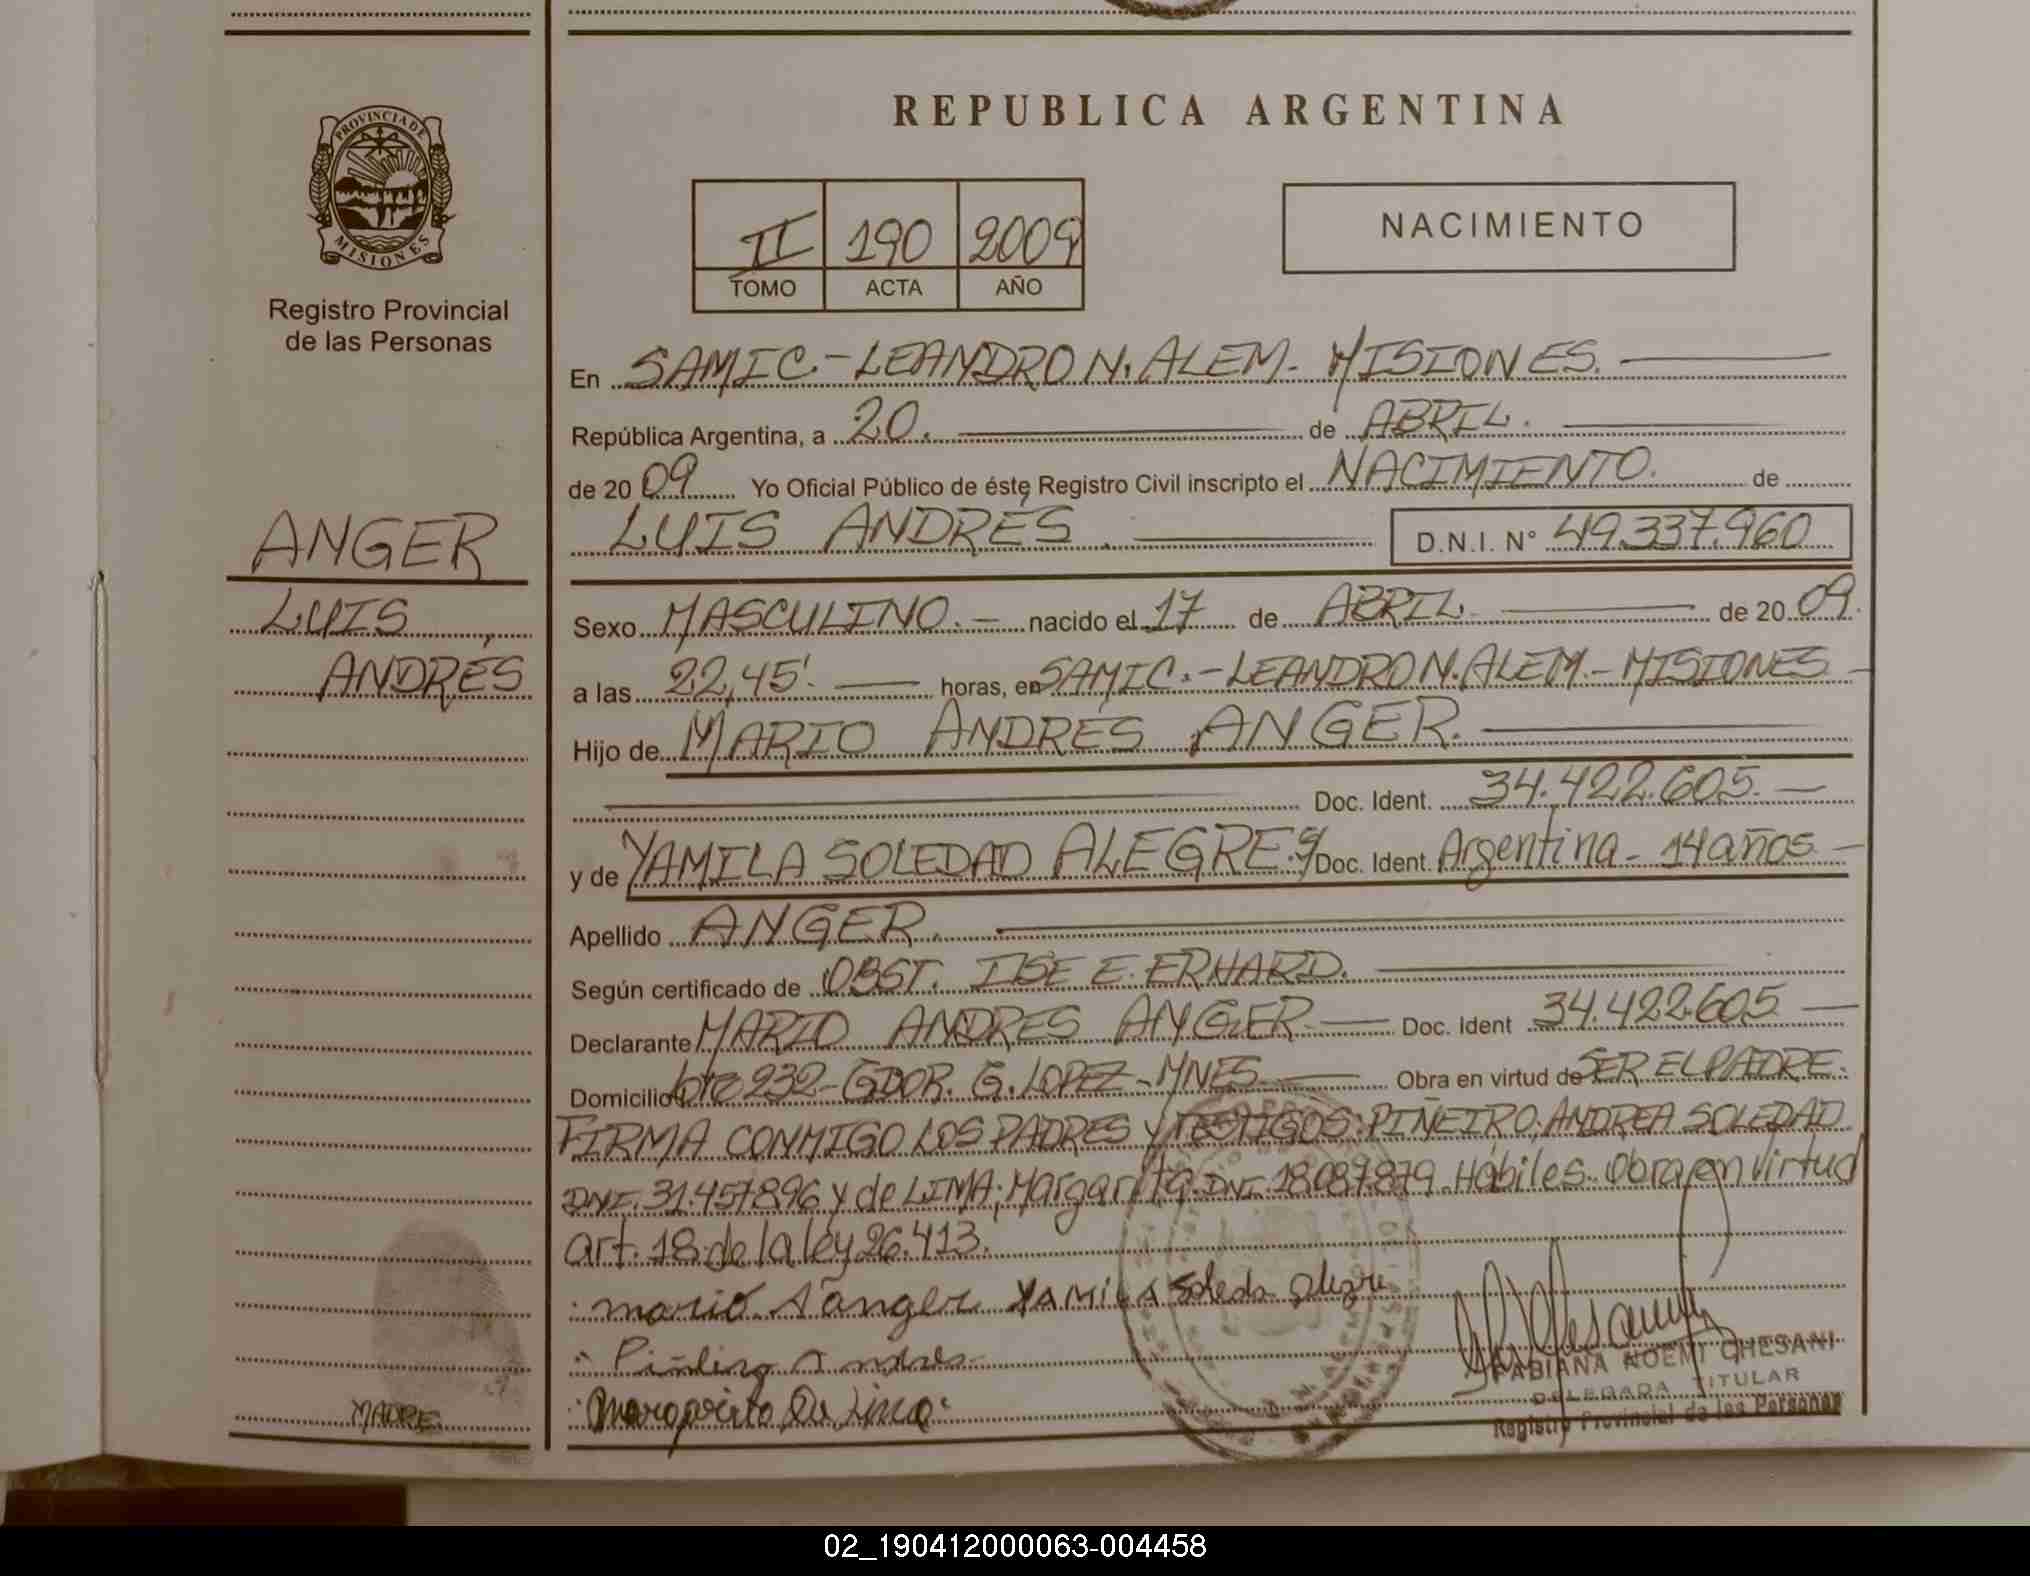 PROVINCIA DE
MISIONES
Registro Provincial
de las Personas
ANGER
LUIS
ANDRÉS
MADRE
REPUBLICA ARGENTINA
II 190 2009
TOMO ACTA AÑO
NACIMIENTO
En SAMIC.-LEANDRO N. ALEM.- MISIONES.
República Argentina, a 20. de ABRIL.
de 2009 Yo Oficial Público de éste Registro Civil inscripto el NACIMIENTO. de
LUIS ANDRÉS. D.N.I. N° 49.337.960
Sexo MASCULINO.- nacido el 17 de ABRIL. de 2009.
a las 22,45'. horas, en SAMIC.-LEANDRO N. ALEM.-MISIONES-
Hijo de MARIO ANDRÉS ANGER.
Doc. Ident. 34.422.605.-
y de YAMILA SOLEDAD ALEGRE. Doc. Ident. Argentina- 14 años.-
Apellido ANGER.
Según certificado de OBST. ILSE E. ERHARD.
Declarante MARIO ANDRES ANGER- Doc. Ident 34.422.605-
Domicilio Lote 232-GDOR. G. LOPEZ-MNES- Obra en virtud de SER EL PADRE.
FIRMA CONMIGO LOS PADRES Y TESTIGOS: PIÑEIRO, ANDREA SOLEDAD
DNI. 31.457.896 y de LIMA, Margarita. DNI. 18.087.879. Hábiles. Obra en virtud
art. 18 de la ley 26.413.
mario A anger YAMILA Soleda Alegre
Margarita De Lima
FABIANA NOEMI CHESANI
DELEGADA TITULAR
Registro Provincial de las Personas
02_190412000063-004458